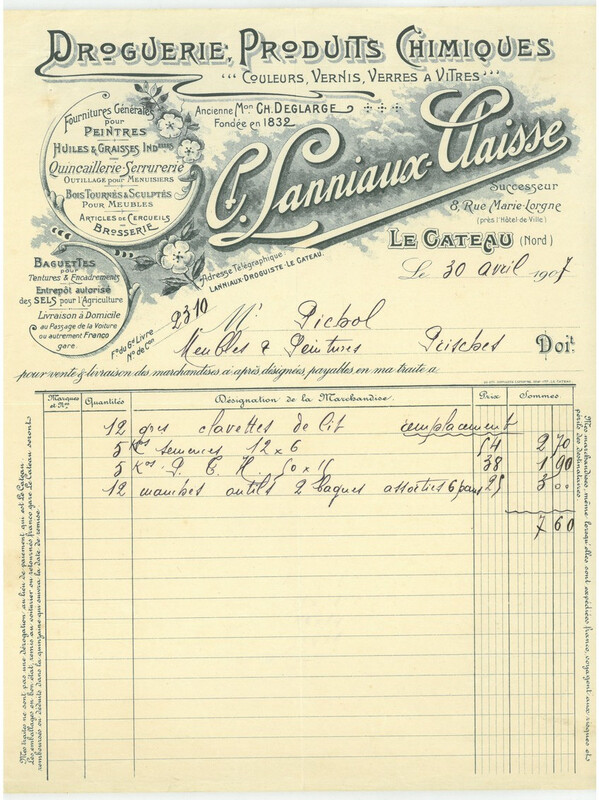 Droguerie, Produits Chimiques
Couleurs, Vernis, Verres a Vitres
Ancienne Mon CH. DEGLARGE
Fondée en 1832
C. Lanniaux-Claisse
Successeur
8, Rue Marie-Lorgne
(près l'Hôtel de Ville)
LE CATEAU (Nord)
Fournitures Générales
pour
PEINTRES
HUILES & GRAISSES INDelles
Quincaillerie-Serrurerie
OUTILLAGE pour MENUISIERS
BOIS TOURNÉS & SCULPTÉS
POUR MEUBLES
ARTICLES DE CERCUEILS
BROSSERIE
BAGUETTES
pour
Tentures & Encadrements
Entrepôt autorisé
des SELS pour l'Agriculture
Livraison à Domicile
au Passage de la Voiture
ou autrement Franco
gare.
Adresse Télégraphique
LANNIAUX-DROGUISTE-LE CATEAU.
Le 30 avril 1907
Fo du Gd Livre 2310
No de
Mr
Meubles & Peintures Prisches Doit
pour vente & livraison des marchandises ci après désignées, payables en ma traite à
Marques et Nos Quantités Désignation de la Marchandise. Prix Sommes
12 gros clavettes de lit remplacement
5 Kos semences 12 x 6 54 2 70
5 Kos 38 1 90
12 manches outils 2 bagues assorties 6 pans 25 3 00
7 60
Mes traites ne sont pas une dérogation au lieu de paiement qui est Le Cateau.
Les emballages en bon état, remis au voiturier ou retournés franco gare Le Cateau seront
remboursés ou déduits dans la quinzaine qui suivra la date de remise.
Mes marchandises, même lorsqu'elles sont expédiées franco, voyagent aux risques et
périls des destinataires.